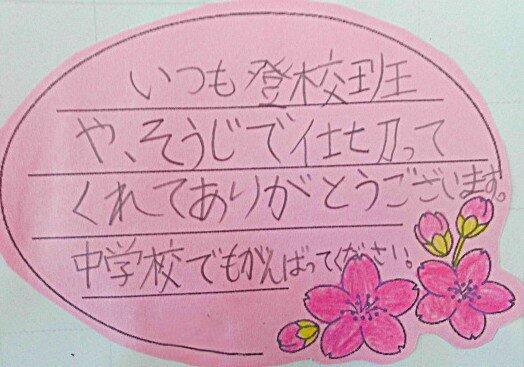 いつも登校班
や、そうじで仕切って
くれてありがとうございます。
中学校でもがんばってください。